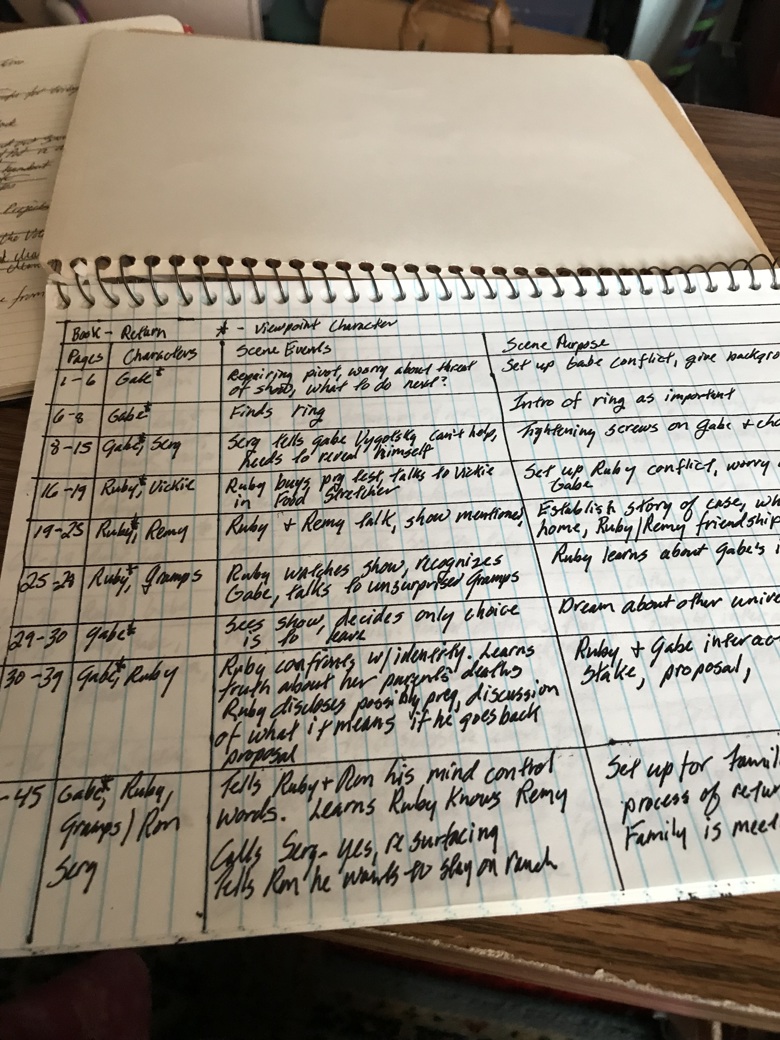 Book - Return * - Viewpoint Character
Pages Characters Scene Events Scene Purpose
1-6 Gabe* Repairing pivot, worry about threat
of show, what to do next?
Set up babe conflict, give backgro
6-8 Gabe* Finds ring Intro of ring as important
8-15 Gabe*, Serg Serg tells gabe Vygotsky can't help,
needs to reveal himself
Tightening screws on Gabe + cho
16-19 Ruby*, Vickie Ruby buys prg test, talks to Vickie
in Food Stretcher
Set up Ruby conflict, worry
Gabe
19-25 Ruby*, Remy Ruby + Remy talk, show mentioned,
Establish story of case, wh
home, Ruby/Remy friendship
25-28 Ruby*, Gramps Ruby watches show, recognizes
Gabe, talks to unsurprised Gramps
Ruby learns about Gabe's i
29-30 Gabe* Sees show, decides only choice
is to leave
Dream about other unive
30-39 Gabe*, Ruby Ruby confronts w/ identity. Learns
truth about her parents deaths
Ruby discloses possibly preg, discussion
of what it means if he goes back
proposal
Ruby + Gabe interac
Stake, proposal,
-45 Gabe*, Ruby,
Gramps/Ron
Serg
Tells Ruby + Ron his mind control
words. Learns Ruby Knows Remy
Calls Serg- yes, resurfacing
Tells Ron he wants to stay on ranch
Set up for famil
process of retur
Family is meet